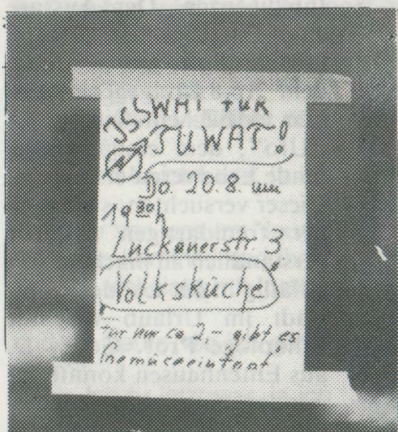 ISSWAT FÜR
TUWAT!
Do. 20.8. um
19³⁰h
Luckauerstr. 3
"Volksküche"
für nur ca 2,- gibt es
Gemüseeintopf